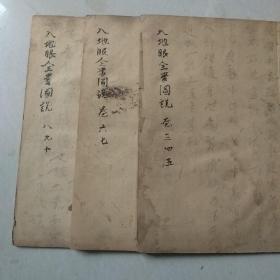 入地眼全書圖說 卷三四五
入地眼全書圖說 卷六七
入地眼全書圖說 八九十